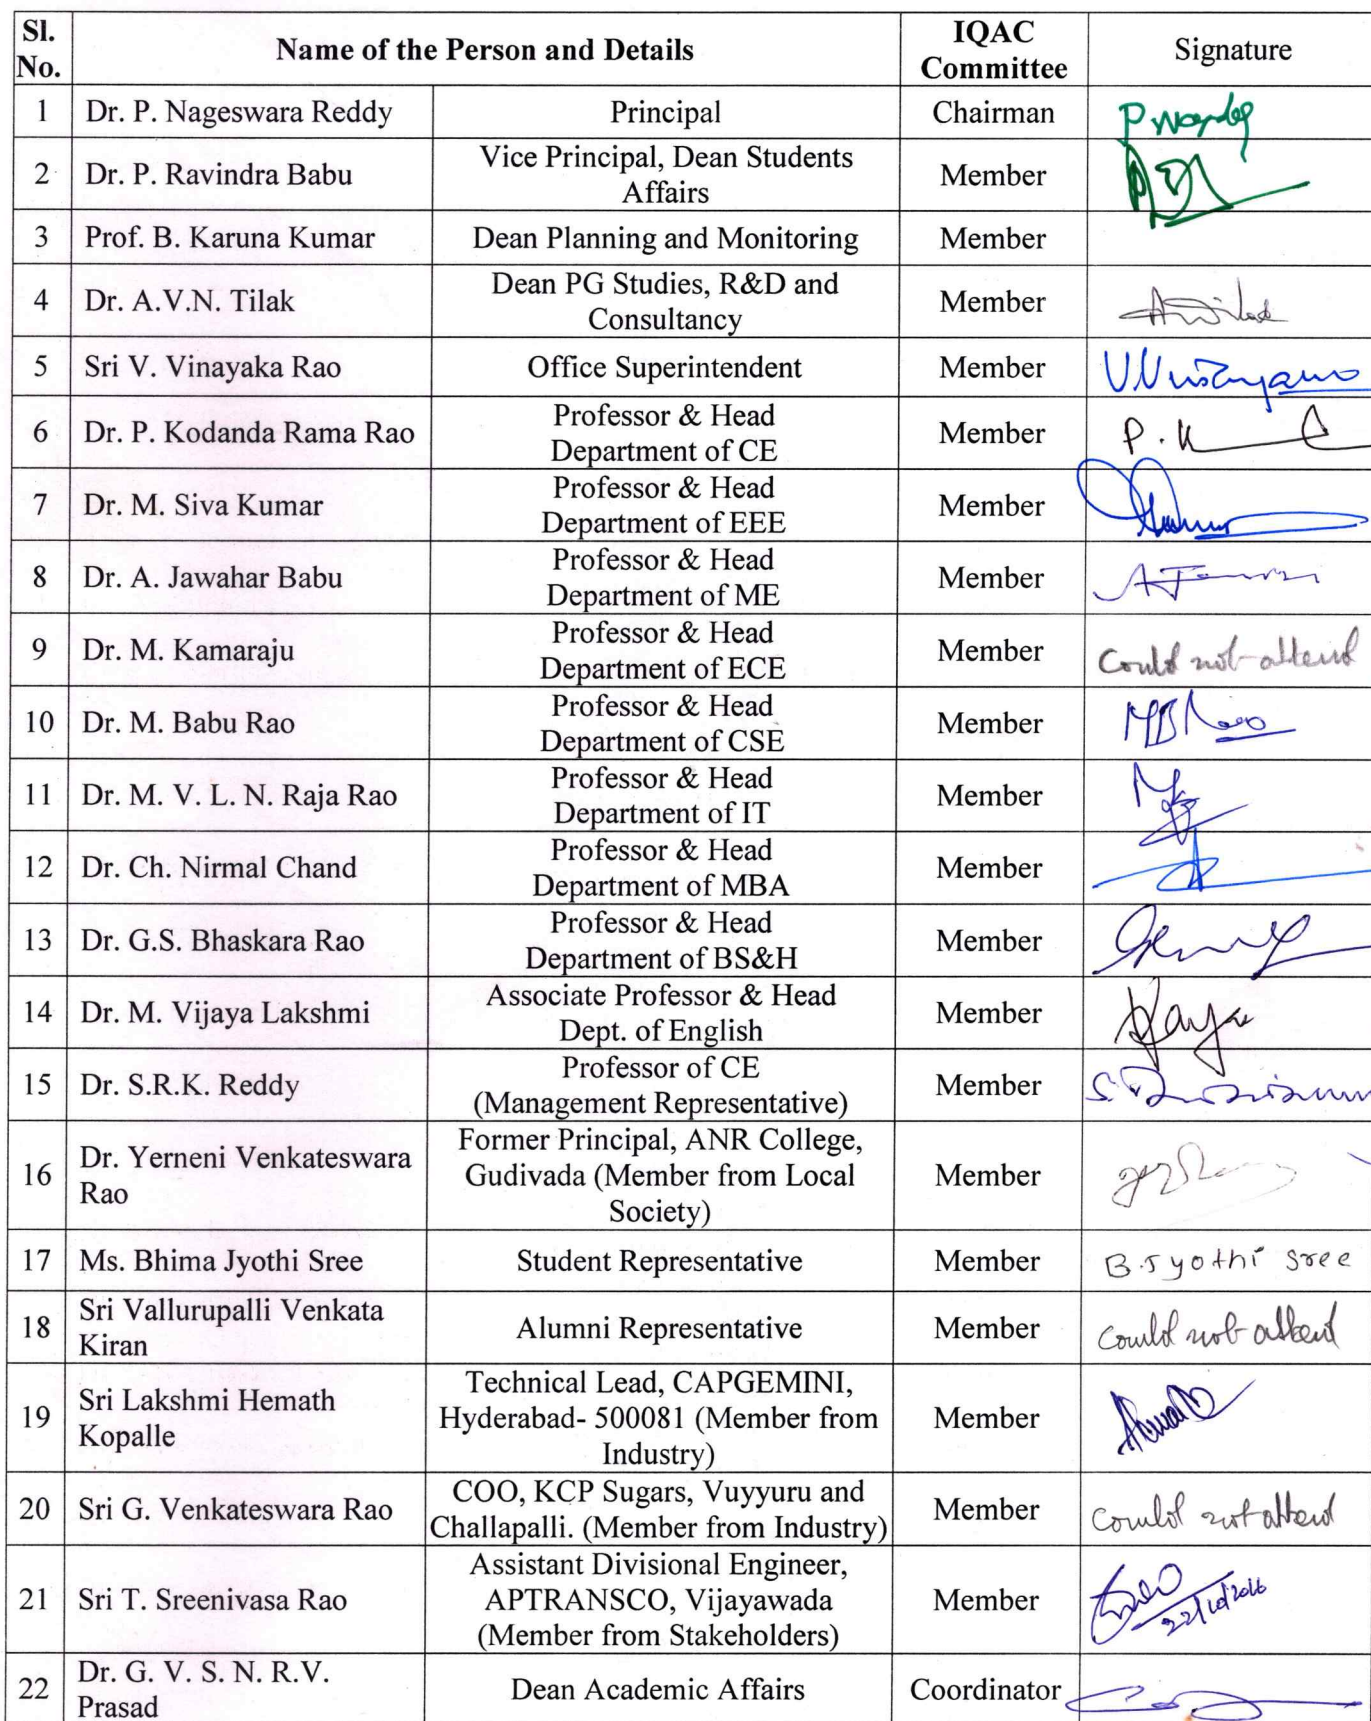 Sl. No. Name of the Person and Details IQAC Committee Signature
1 Dr. P. Nageswara Reddy Principal Chairman
2 Dr. P. Ravindra Babu Vice Principal, Dean Students Affairs Member
3 Prof. B. Karuna Kumar Dean Planning and Monitoring Member
4 Dr. A.V.N. Tilak Dean PG Studies, R&D and Consultancy Member
5 Sri V. Vinayaka Rao Office Superintendent Member
6 Dr. P. Kodanda Rama Rao Professor & Head Department of CE Member
7 Dr. M. Siva Kumar Professor & Head Department of EEE Member
8 Dr. A. Jawahar Babu Professor & Head Department of ME Member
9 Dr. M. Kamaraju Professor & Head Department of ECE Member Could not attend
10 Dr. M. Babu Rao Professor & Head Department of CSE Member
11 Dr. M. V. L. N. Raja Rao Professor & Head Department of IT Member
12 Dr. Ch. Nirmal Chand Professor & Head Department of MBA Member
13 Dr. G.S. Bhaskara Rao Professor & Head Department of BS&H Member
14 Dr. M. Vijaya Lakshmi Associate Professor & Head Dept. of English Member
15 Dr. S.R.K. Reddy Professor of CE (Management Representative) Member
16 Dr. Yerneni Venkateswara Rao Former Principal, ANR College, Gudivada (Member from Local Society) Member
17 Ms. Bhima Jyothi Sree Student Representative Member B.Jyothi Sree
18 Sri Vallurupalli Venkata Kiran Alumni Representative Member Could not attend
19 Sri Lakshmi Hemath Kopalle Technical Lead, CAPGEMINI, Hyderabad- 500081 (Member from Industry) Member
20 Sri G. Venkateswara Rao COO, KCP Sugars, Vuyyuru and Challapalli. (Member from Industry) Member Could not attend
21 Sri T. Sreenivasa Rao Assistant Divisional Engineer, APTRANSCO, Vijayawada (Member from Stakeholders) Member 22/10/2016
22 Dr. G. V. S. N. R.V. Prasad Dean Academic Affairs Coordinator